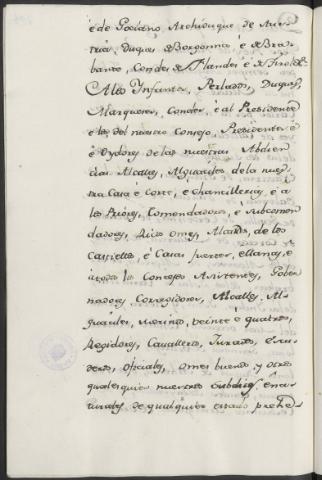 è de Gociano, Archiduque de Aus-
tria, Duques de Borgonna è de Bra-
bante, Condes de Flandes è de Tirol &c.
A los Infantes, Perlados, Duques,
Marqueses, Condes, è al Presidente
è los del nuestro Consejo, Presidentes è
è Oydores de las nuestras Abdien-
cias Alcaldes, Alguaciles de la nues-
tra Casa è Corte, e Chancillerias, e a
los Priores, Comendadores, e Subcomen-
dadores, Ricos omes, Alcaides, de los
Castillos, è Casas fuertes, è llanas, e
à todos los Concejos Asistentes, Gober-
nadores Corregidores, Alcalles, Al-
guaciles, merinos, veinte è quatros,
Regidores, Cavalleros, Jurados, Escu-
deros, oficiales, omes buenos, y otros
qualesquier nuestros subditos è na-
turales de qualquier estado prehe-